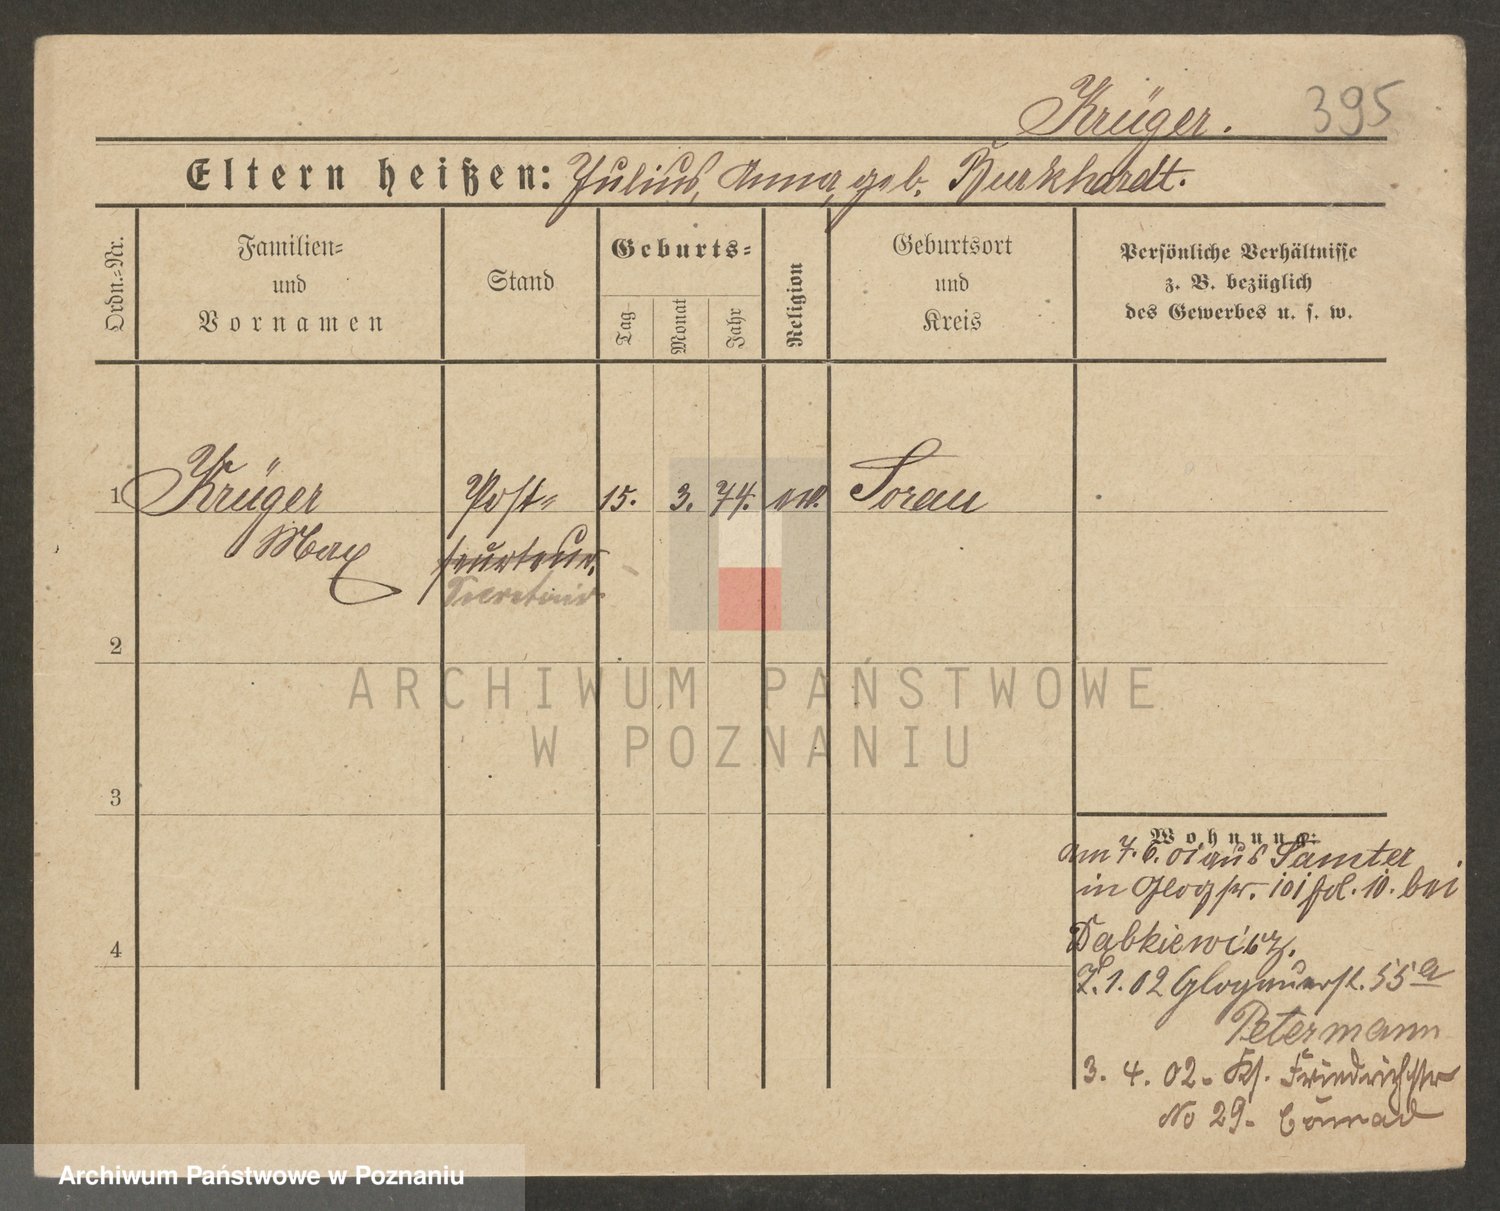 Krüger. 395
Eltern heißen: Julius, Anna, geb. Burkhardt.
Ordn.-Nr.
Familien-
und
Vornamen
Stand
Geburts-
Tag
Monat
Jahr
Religion
Geburtsort
und
Kreis
Persönliche Verhältnisse
z. B. bezüglich
des Gewerbes u. s. w.
1 Krüger Post- 15. 3. 74. ev. Sorau
Max
Secretair
2
ARCHIWUM PAŃSTWOWE
W POZNANIU
3
Wohnung:
am 7. 6. 01 aus Samter
in Glogstr. 101 bei
Dabkiewicz.
7. 1. 02 Glogauerst. 55 a
Petermann
3. 4. 02. Kl. Friedrichstr
No 29. Conrad
4
Archiwum Państwowe w Poznaniu